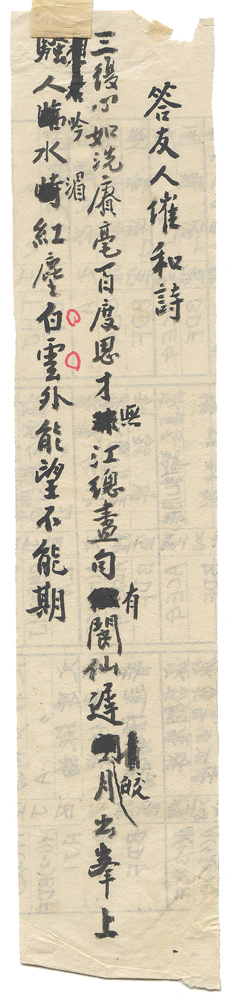 答友人催和詩
三復心如洗賡毫百度思才無江總畫句有閬仙遲皎月出峯上
騷人吟水湄紅塵白雲外能望不能期